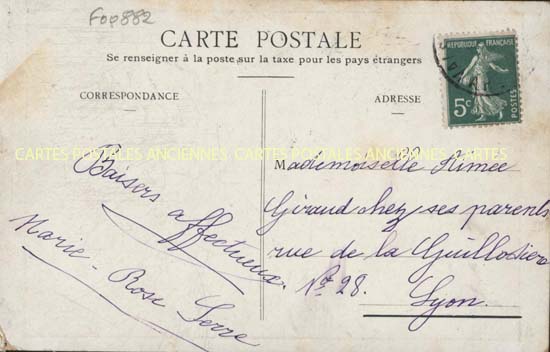 Fop882
CARTE POSTALE
Se renseigner à la poste sur la taxe pour les pays étrangers
CORRESPONDANCE
ADRESSE
REPUBLIQUE FRANÇAISE
5c
POSTES
CARTES POSTALES ANCIENNES CARTES POSTALES ANCIENNES CARTES
Baisers affectueux.
Marie-Rose Serre
Mademoiselle Aimée
Giraud chez ses parents
rue de la Guillotière
Nº 28.
Lyon.